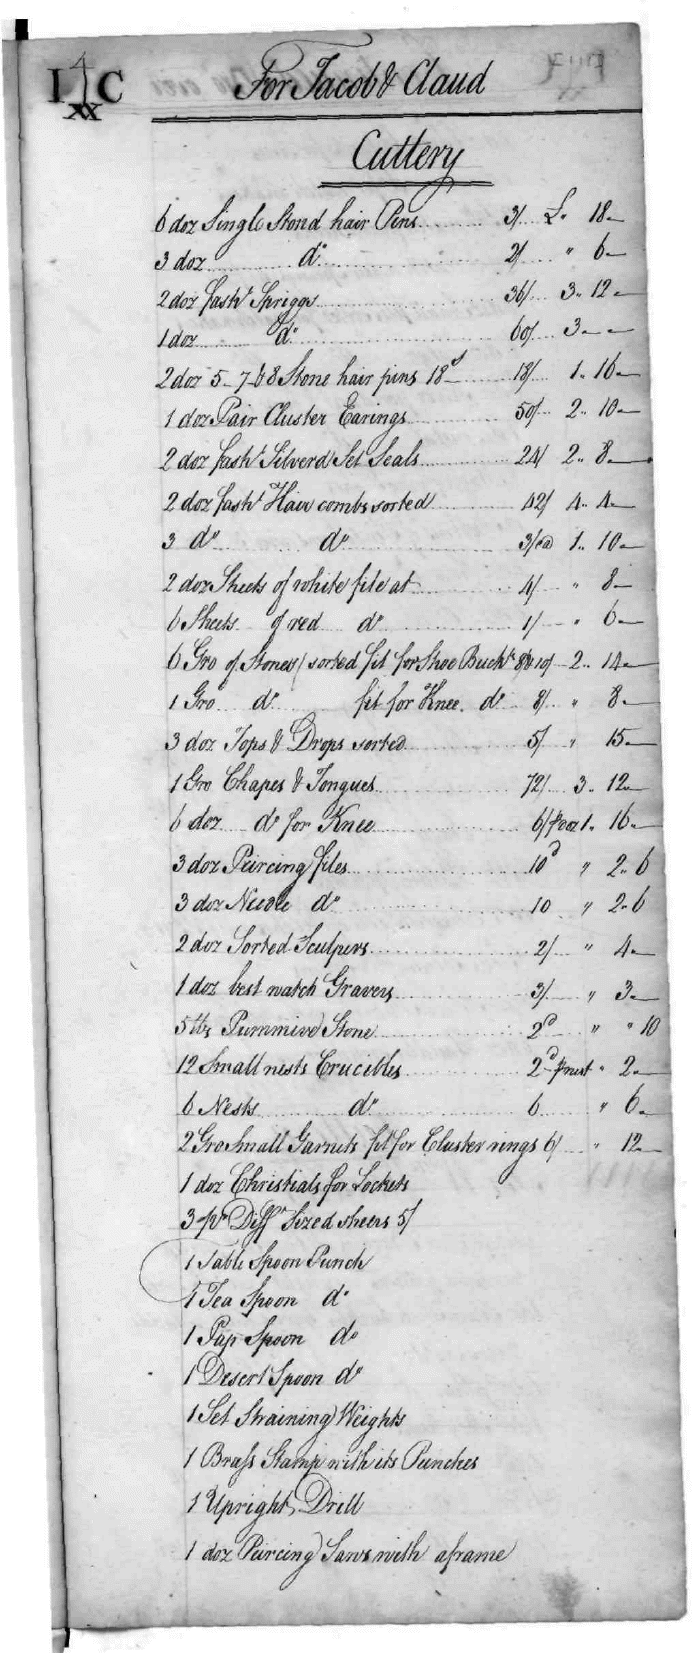 I C
XX
For Jacob & Claud
Cuttery
6 doz Single Stond hair Pins 3/ £ " 18 -
3 doz do 2/ " 6 -
2 doz fasht Spriggs 36/ 3 " 12 -
1 doz do 60/ 3 - -
2 doz 5 - 7 & 8 Stone hair pins 18s 18/ 1 " 16 -
1 doz Pair Cluster Earings 50/ 2 " 10 -
2 doz fasht Silverd Set Seals 24/ 2 " 8 -
2 doz fasht Hair combs sorted 42/ 4 " 4 -
3 do do 3/ea 1 " 10 -
2 doz Sheets of white file at 4/ " 8 -
6 Sheets of red do 1/ " 6 -
6 Gro of Stones / sorted fit for Shoe Bucks 8 & 10/ 2 " 14 -
1 Gro do fit for Knee do 8/ " 8 -
3 doz Tops & Drops sorted 5/ " 15 -
1 Gro Chapes & Tongues 72/ 3 " 12 -
6 doz do for Knee 6/ doz 1 " 16 -
3 doz Peircing files 10d " 2 " 6
3 doz Needle do 10 " 2 " 6
2 doz Sorted Sculpers 2/ " 4 -
1 doz best watch Gravers 3/ " 3 -
5 lbs Pummive Stone 2d " " 10
12 Small nests Crucibles 2d nest " 2 -
6 Nests do 6 " 6 -
2 Gro Small Garnets fit for Cluster rings 6/ " 12 -
1 doz Christials for Lockets
3 pr Difft Sized sheers 5/
1 Table Spoon Punch
1 Tea Spoon do
1 Pap Spoon do
1 Desert Spoon do
1 Set Straining Weights
1 Brass Stamp with its Punches
1 Upright Drill
1 doz Peircing Saws with a frame